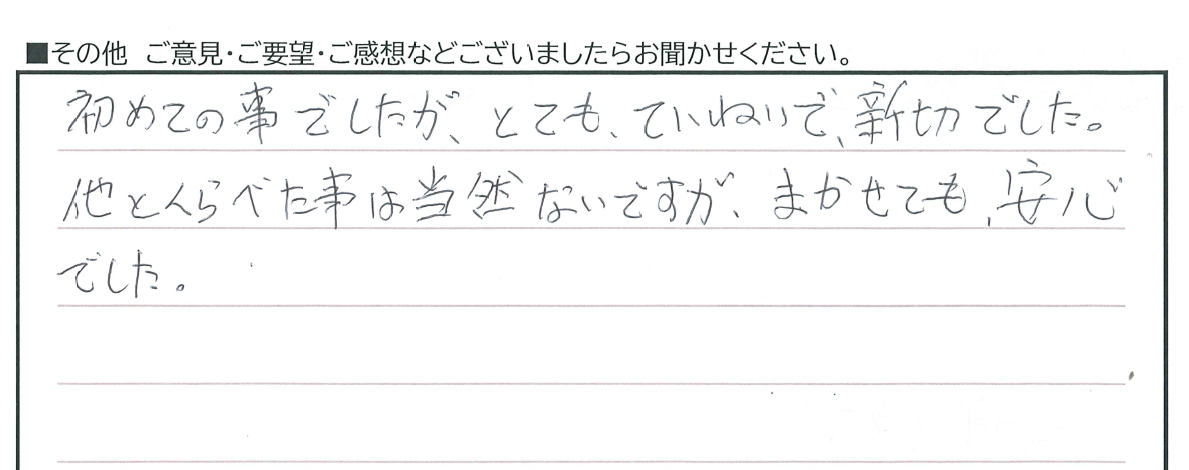 ■その他 ご意見・ご要望・ご感想などございましたらお聞かせください。
初めての事でしたが、とても、ていねいで、新切でした。
他とくらべた事は当然ないですが、まかせても、安心
でした。